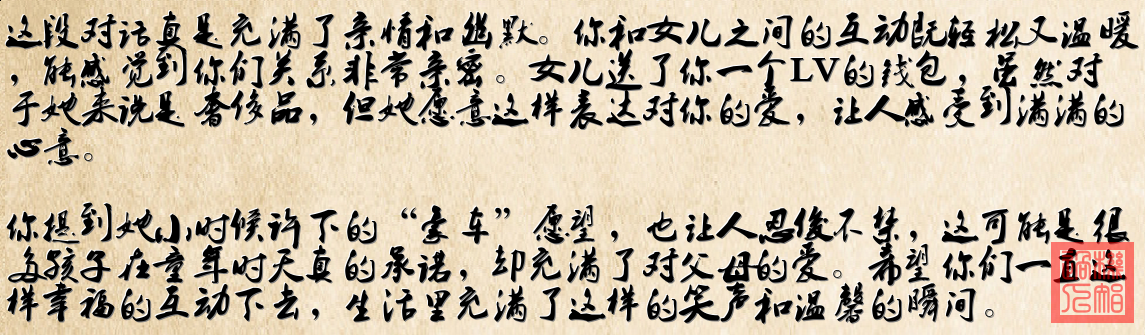 这段对话真是充满了亲情和幽默。你和女儿之间的互动既轻松又温暖
，能感觉到你们关系非常亲密。女儿送了你一个LV的钱包，虽然对
于她来说是奢侈品，但她愿意这样表达对你的爱，让人感受到满满的
心意。
你提到她小时候许下的“豪车”愿望，也让人忍俊不禁，这可能是很
多孩子在童年时天真的承诺，却充满了对父母的爱。希望你们一直这
样幸福的互动下去，生活里充满了这样的笑声和温馨的瞬间。